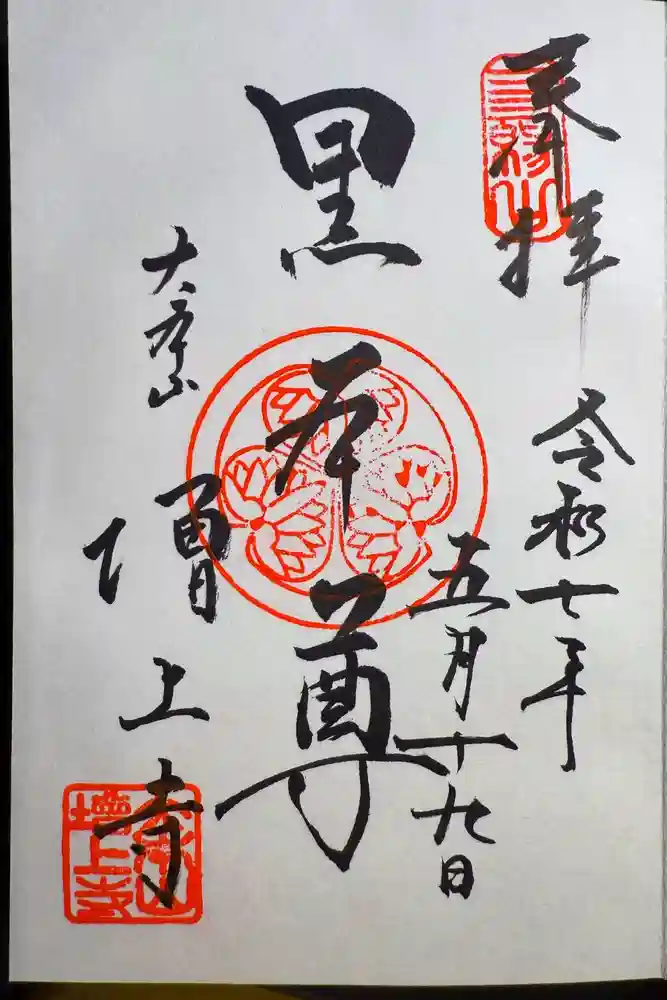 三縁山
奉拝
令和七年
五月十九日
黒本尊
大本山
増上寺